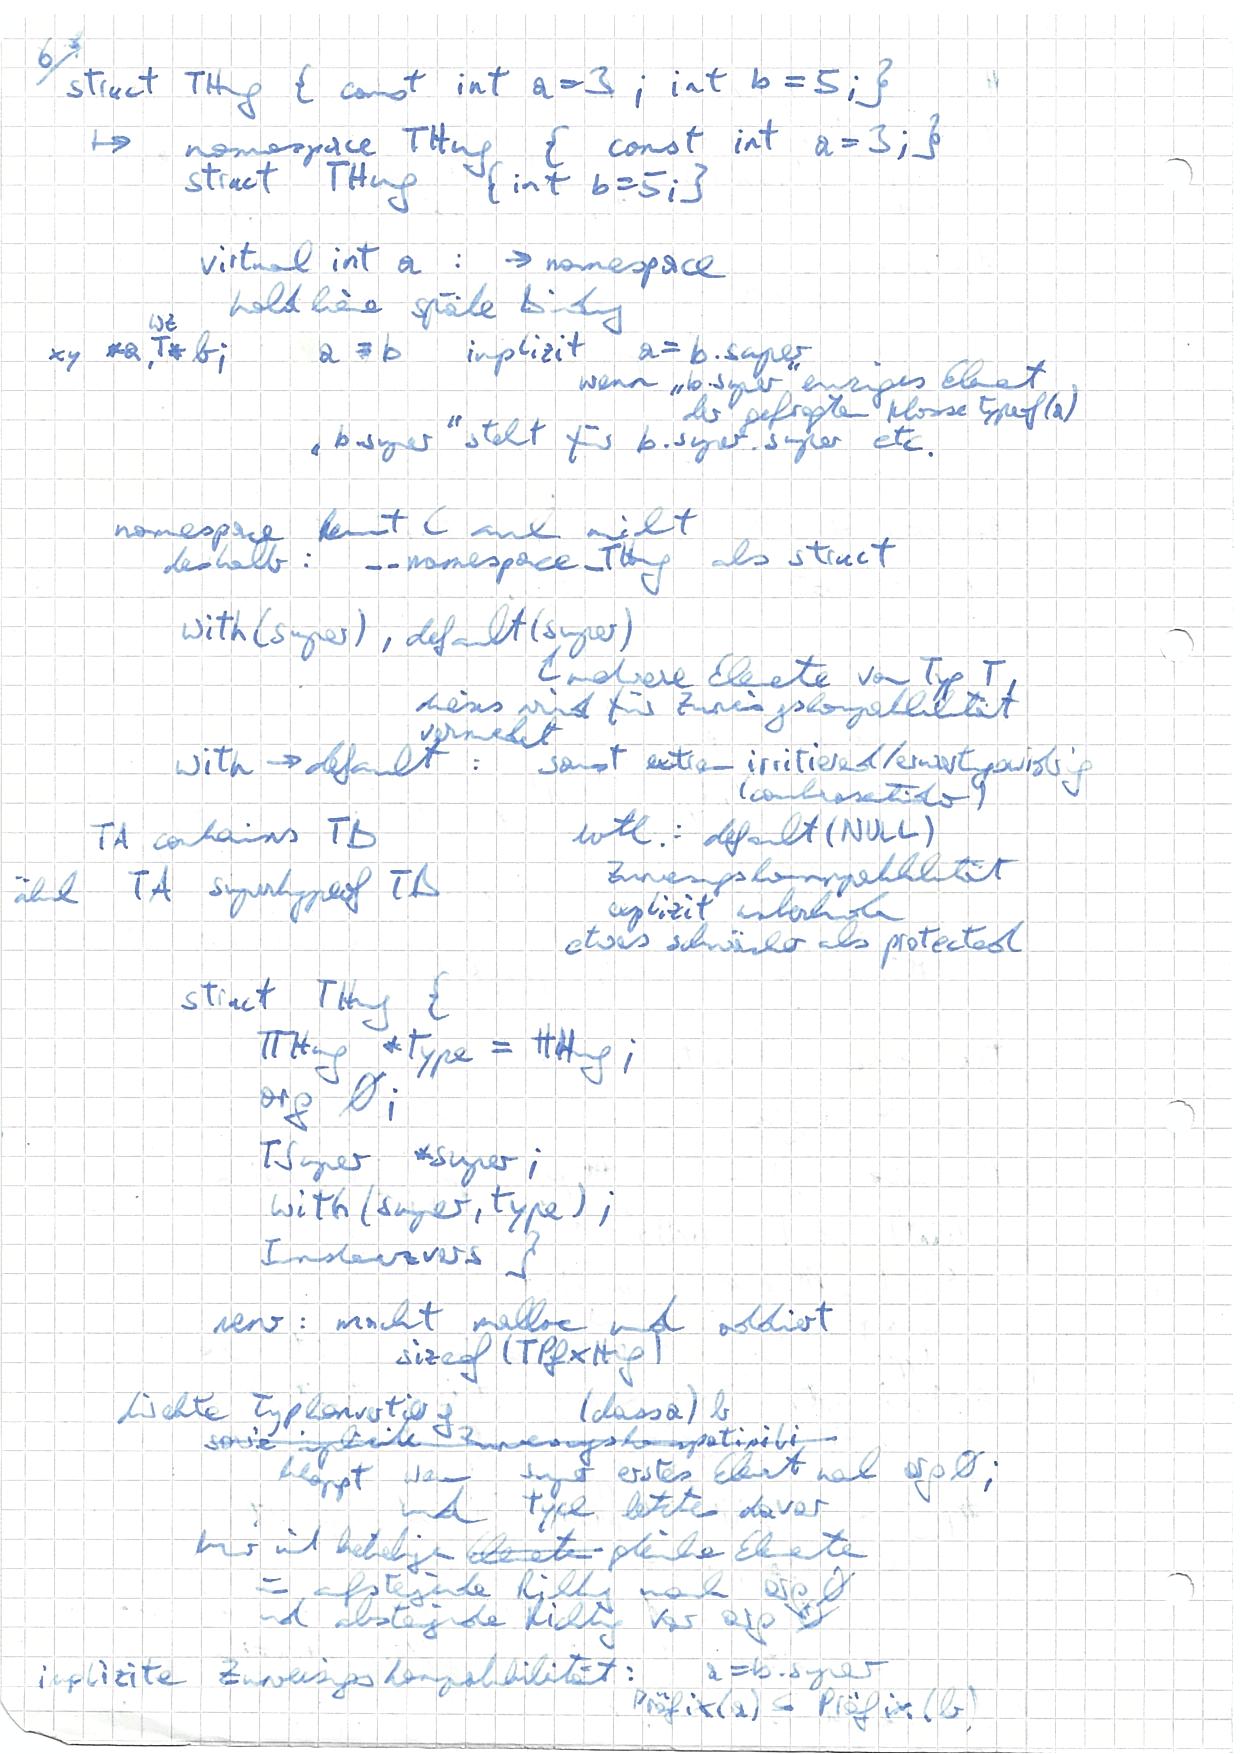 6/3
struct THing { const int a=3 ; int b=5;}
↦ namespace THing { const int a=3;}
struct THing {int b=5;}
virtual int a : → namespace
späte Bindung
xy *a, T* b; a = b implizit a = b.super
wenn „b.super" einziges Element
der gefragten Klasse typeof(a)
„b.super" steht für b.super.super etc.
namespace kennt C auch nicht
deshalb : __namespace_THing als struct
with(super) , default(super)
mehrere Elemente von Typ T,
dieses wird für Zuweisungskompatibilität
vermerkt
with → default : sonst extrem irritierend/erwartungswidrig
TA contains TB evtl. : default(NULL)
ähnl TA superhypeof TB Zuweisungskompatibilität
explizit unterbinden
etwas schwächer als protected
struct THing {
TTHing *type = ttHing ;
org Ø ;
TSuper *super ;
with(super, type) ;
Instanzvars }
new : macht malloc und addiert
sizeof (TPfxHing)
Typkonvertierung (classa) b
sowie implizite Zuweisungskompatibili
klappt wenn super erstes Element nach org Ø ;
und type letztes davor
beliebige Elemente gleiche Elemente
= aufsteigende Richtung nach org Ø
und absteigende Richtung vor org Ø
implizite Zuweisungskompatibilität : a = b.super
Präfix(a) ⊆ Präfix(b)